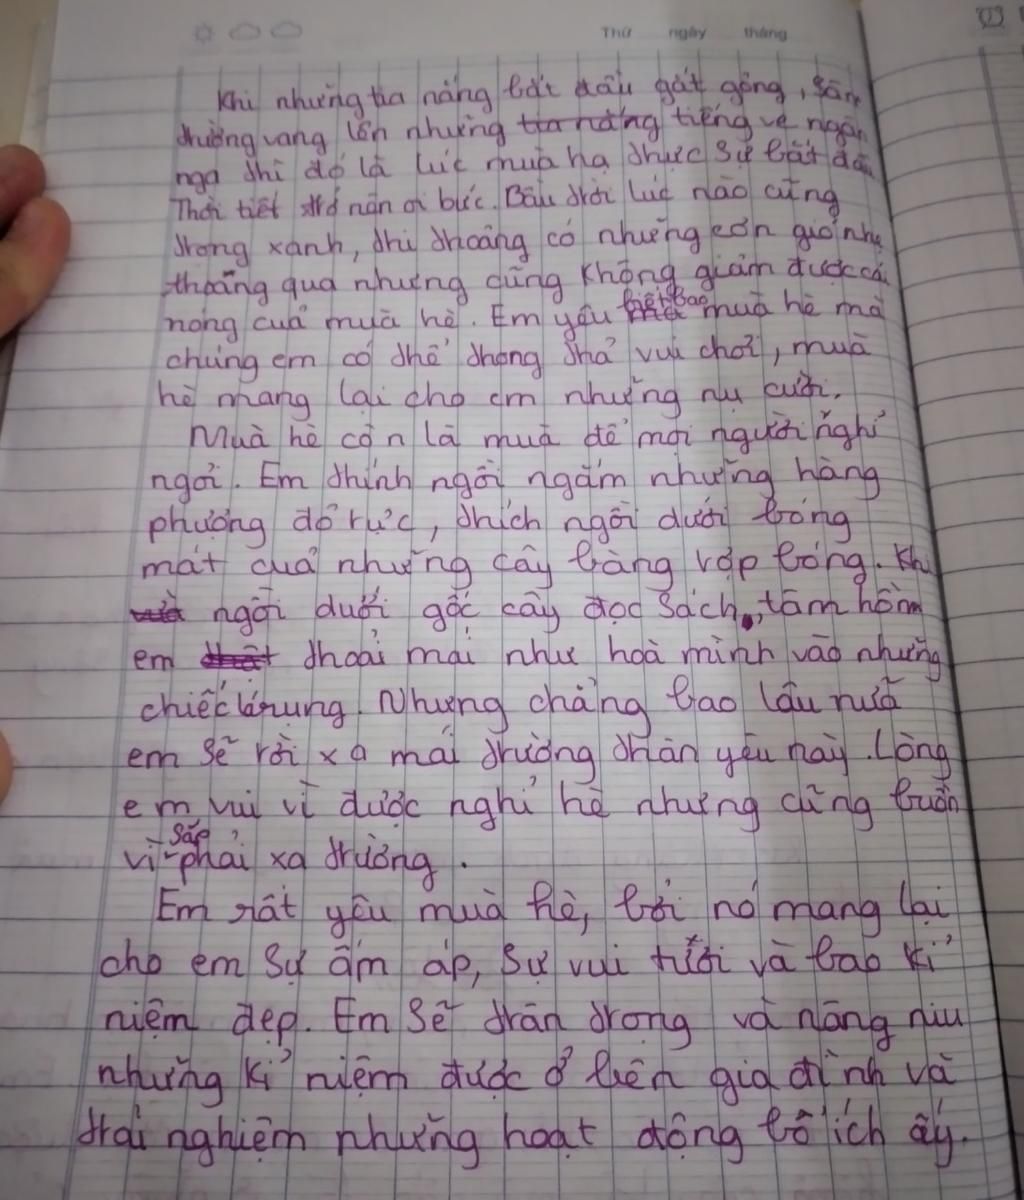 Thứ ngày tháng
Khi những tia nắng bắt đầu gắt gỏng, sân
trường vang lên những tia nắng tiếng ve ngân
nga thì đó là lúc mùa hạ thực sự bắt đầu
Thời tiết trở nên oi bức. Bầu trời lúc nào cũng
trong xanh, thi thoảng có những cơn gió nhẹ
thoảng qua nhưng cũng không giảm được cái
nóng của mùa hè. Em yêu biết bao mùa hè mà
chúng em có thể thong thả vui chơi, mùa
hè mang lại cho em những nụ cười.
Mùa hè còn là mùa để mọi người nghỉ
ngơi. Em thính ngồi ngắm những hàng
phượng đỏ rực, thích ngồi dưới bóng
mát của những cây bàng rợp bóng. Khi
ngồi dưới gốc cây đọc sách, tâm hồn
em thoải mái như hoà mình vào những
chiếc lá rụng. Nhưng chẳng bao lâu nữa
em sẽ rời xa mái trường thân yêu này. Lòng
em vui vì được nghỉ hè nhưng cũng buồn
vì sắp phải xa trường.
Em rất yêu mùa hè, bởi nó mang lại
cho em sự ấm áp, sự vui tươi và bao kỉ
niệm đẹp. Em sẽ trân trọng và nâng niu
những kỉ niệm được ở bên gia đình và
trải nghiệm những hoạt động bổ ích ấy.